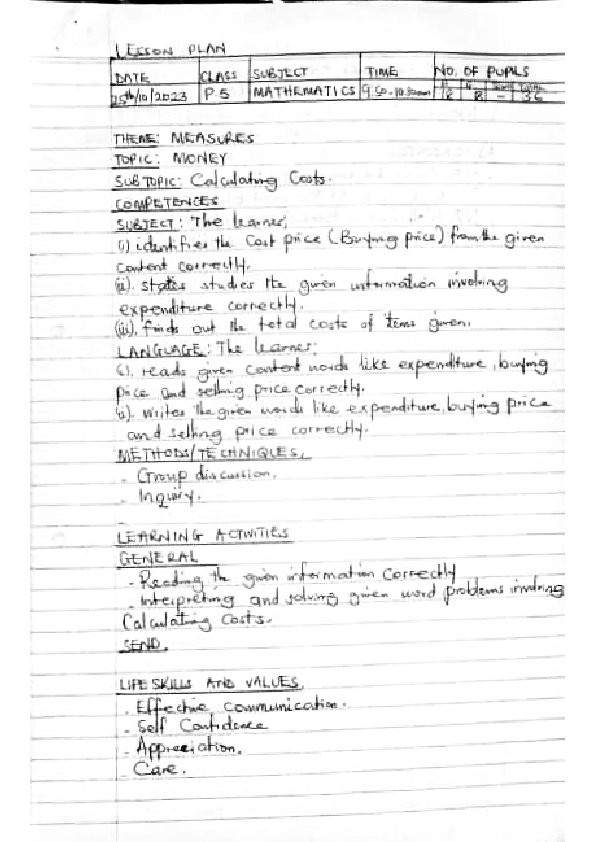 LESSON PLAN
DATE CLASS SUBJECT TIME NO. OF PUPILS
25th/10/2023 P.5 MATHEMATICS 36
THEME: MEASURES
TOPIC: MONEY
SUB TOPIC: Calculating Costs.
COMPETENCES
SUBJECT: The learner;
(i) identifies the Cost price (Buying price) from the given
Content correctly.
(ii). states studies the given information involving
expenditure correctly.
(iii). finds out the total costs of items given.
LANGUAGE: The learner;
(i). reads given content words like expenditure, buying
price and selling price correctly.
(ii). writes the given words like expenditure, buying price
and selling price correctly.
METHODS/TECHNIQUES.
- Group discussion.
- Inquiry.
LEARNING ACTIVITIES
GENERAL
- Reading the given information correctly
- Interpreting and solving given word problems involving
Calculating costs.
SEND.
LIFE SKILLS AND VALUES.
- Effective communication.
- Self Confidence
- Appreciation.
- Care.